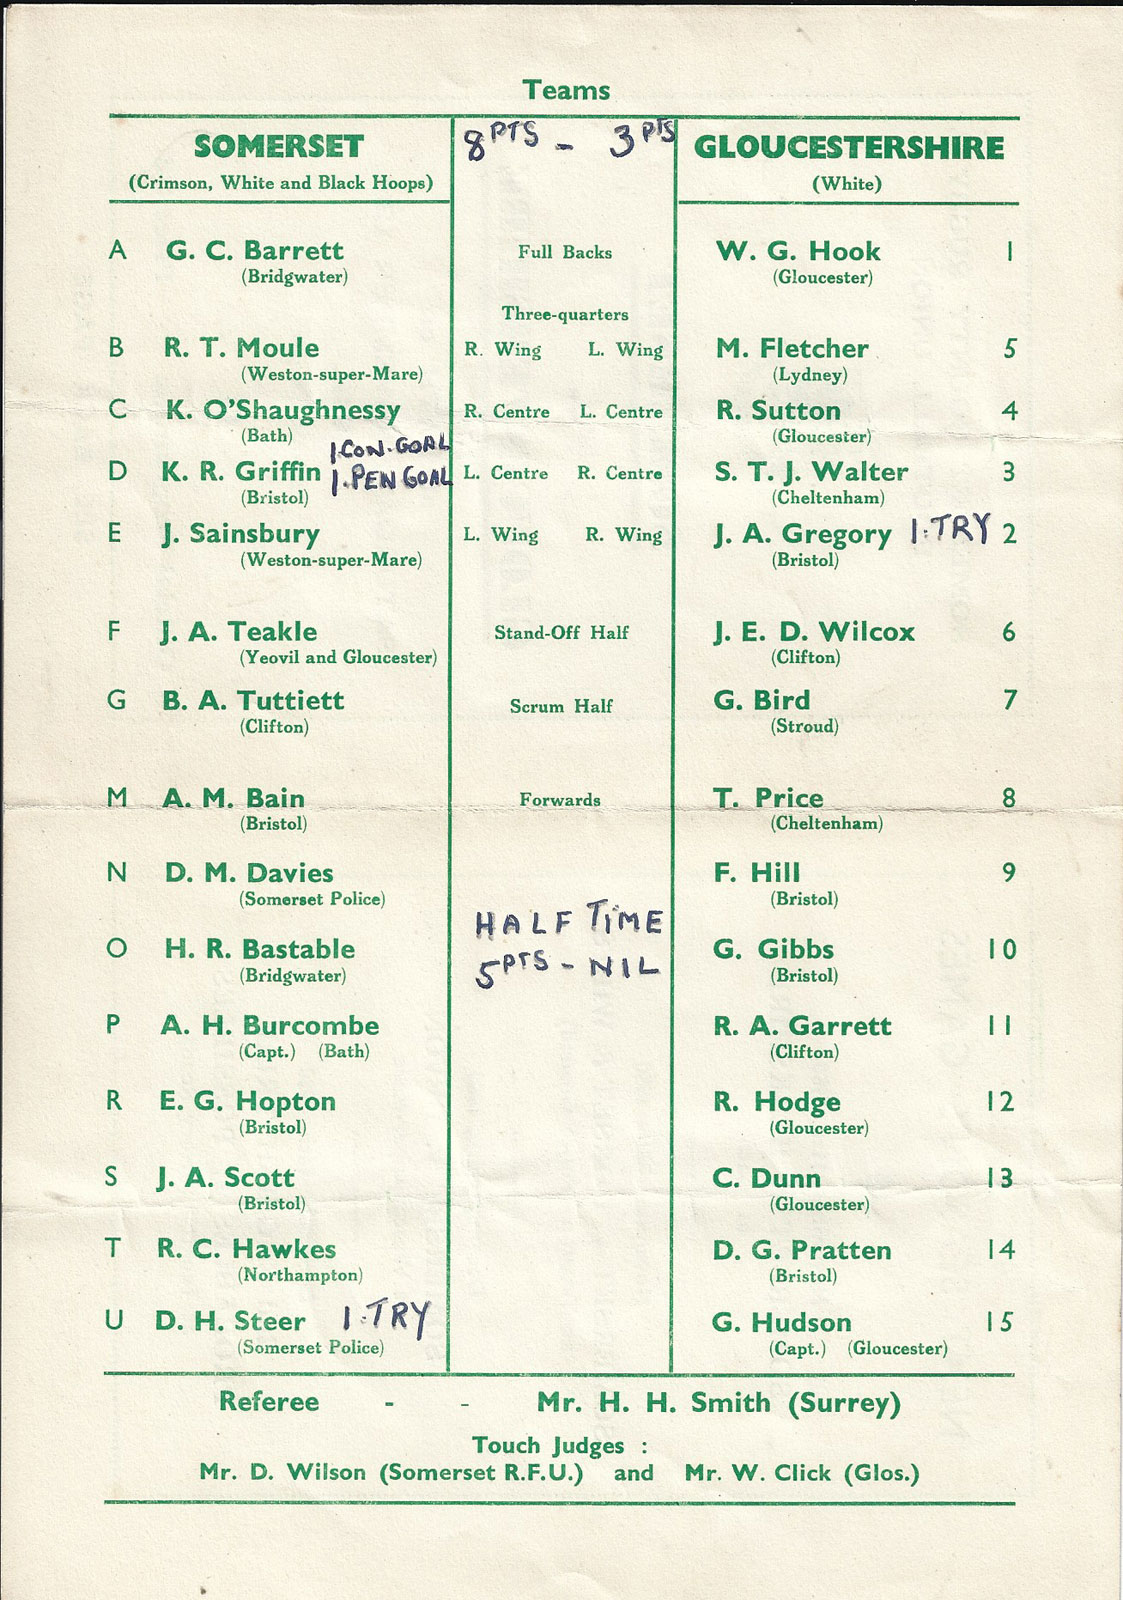 Teams
SOMERSET 8 PTS - 3 PTS GLOUCESTERSHIRE
(Crimson, White and Black Hoops) (White)
A G. C. Barrett Full Backs W. G. Hook 1
(Bridgwater) (Gloucester)
Three-quarters
B R. T. Moule R. Wing L. Wing M. Fletcher 5
(Weston-super-Mare) (Lydney)
C K. O'Shaughnessy R. Centre L. Centre R. Sutton 4
(Bath) (Gloucester)
1.CON.GOAL
D K. R. Griffin 1.PEN GOAL L. Centre R. Centre S. T. J. Walter 3
(Bristol) (Cheltenham)
E J. Sainsbury L. Wing R. Wing J. A. Gregory 1.TRY 2
(Weston-super-Mare) (Bristol)
F J. A. Teakle Stand-Off Half J. E. D. Wilcox 6
(Yeovil and Gloucester) (Clifton)
G B. A. Tuttiett Scrum Half G. Bird 7
(Clifton) (Stroud)
M A. M. Bain Forwards T. Price 8
(Bristol) (Cheltenham)
N D. M. Davies F. Hill 9
(Somerset Police) (Bristol)
HALF TIME
O H. R. Bastable G. Gibbs 10
5 PTS - NIL
(Bridgwater) (Bristol)
P A. H. Burcombe R. A. Garrett 11
(Capt.) (Bath) (Clifton)
R E. G. Hopton R. Hodge 12
(Bristol) (Gloucester)
S J. A. Scott C. Dunn 13
(Bristol) (Gloucester)
T R. C. Hawkes D. G. Pratten 14
(Northampton) (Bristol)
U D. H. Steer 1.TRY G. Hudson 15
(Somerset Police) (Capt.) (Gloucester)
Referee - - Mr. H. H. Smith (Surrey)
Touch Judges :
Mr. D. Wilson (Somerset R.F.U.) and Mr. W. Click (Glos.)